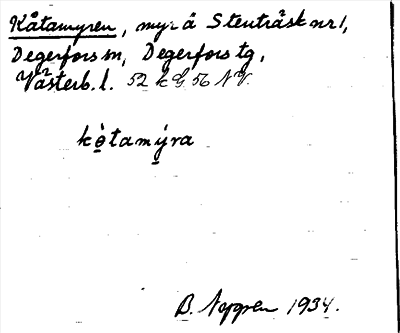 Kåtamyren, myr å Stenträsk nr 1,
Degerfors sn, Degerfors tg,
Västerb. l. 52 k G 56 NV.
kò̱tamỳ̱ra
B. Nygren 1934.